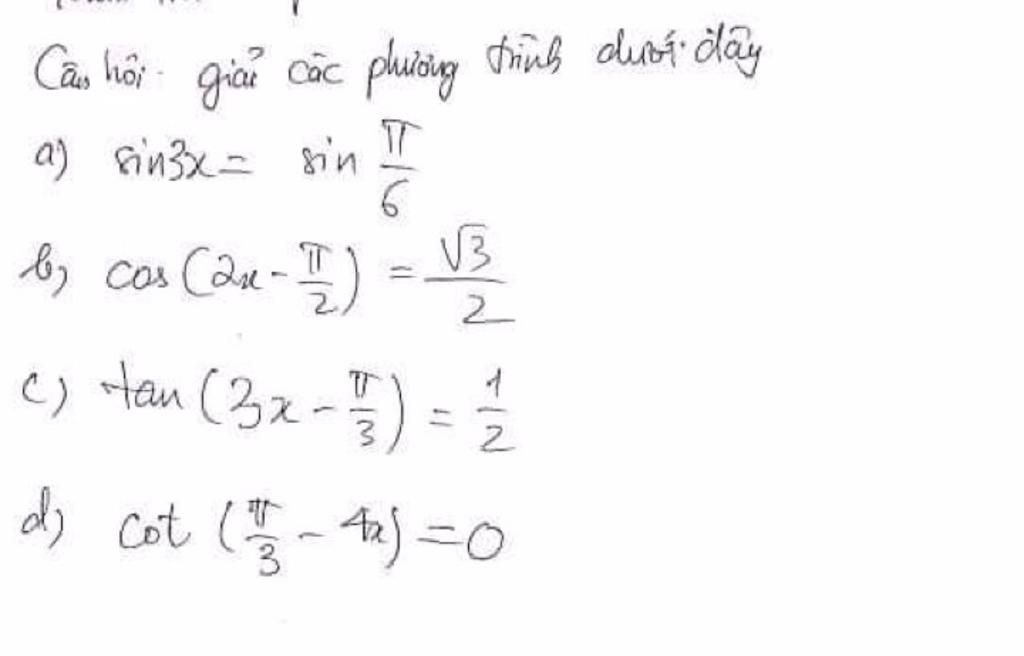 Câu hỏi. giải các phương trình dưới đây
a) sin3x = sin π/6
b) cos(2x - π/2) = √3/2
c) tan(3x - π/3) = 1/2
d) cot(π/3 - 4x) = 0